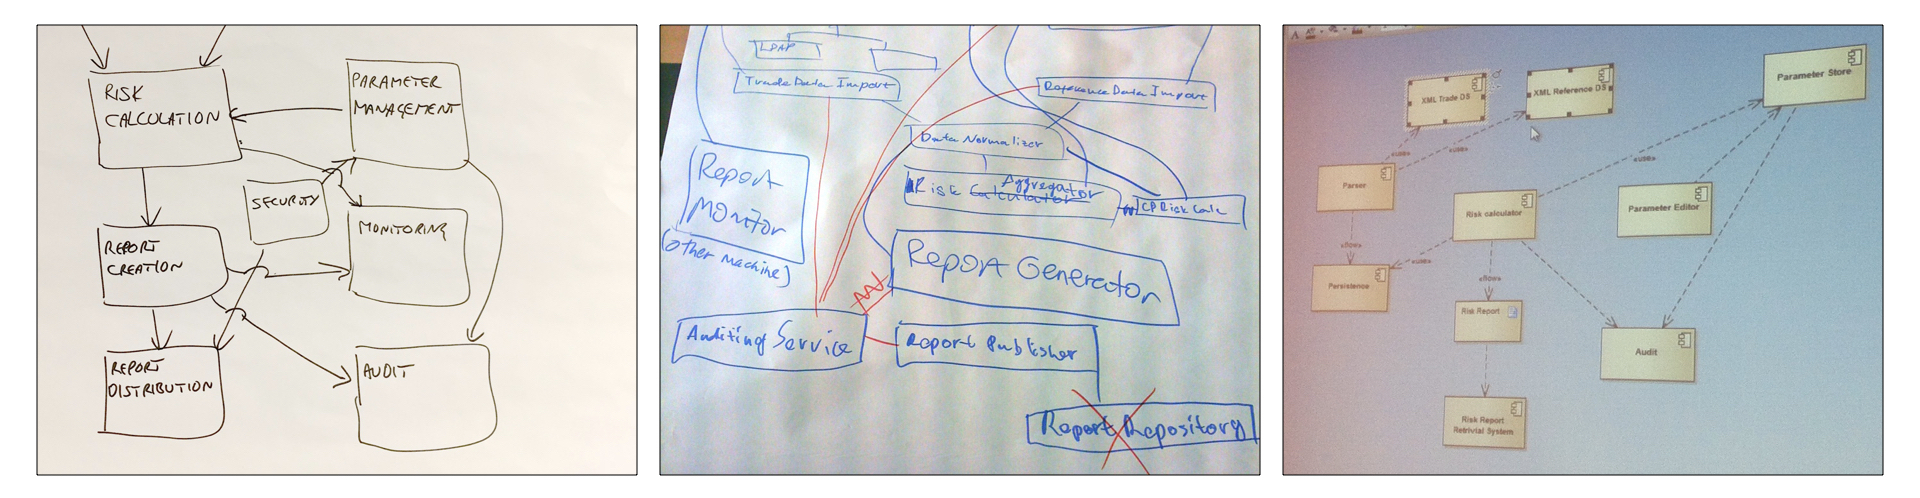 RISK
CALCULATION
PARAMETER
MANAGEMENT
SECURITY
MONITORING
REPORT
CREATION
REPORT
DISTRIBUTION
AUDIT
LDAP
Trade Data Import
Reference Data Import
Data Normalizer
Aggregator
Risk Calculator
CP Risk Calc
Report
Monitor
(other machine)
Report Generator
Auditing Service
Report Publisher
Report Repository
XML Trade DS
XML Reference DS
Parameter Store
«use»
«use»
«use»
Parser
Risk calculator
Parameter Editor
«flow»
«use»
«flow»
Persistence
Risk Report
Audit
Risk Report
Retrivial System